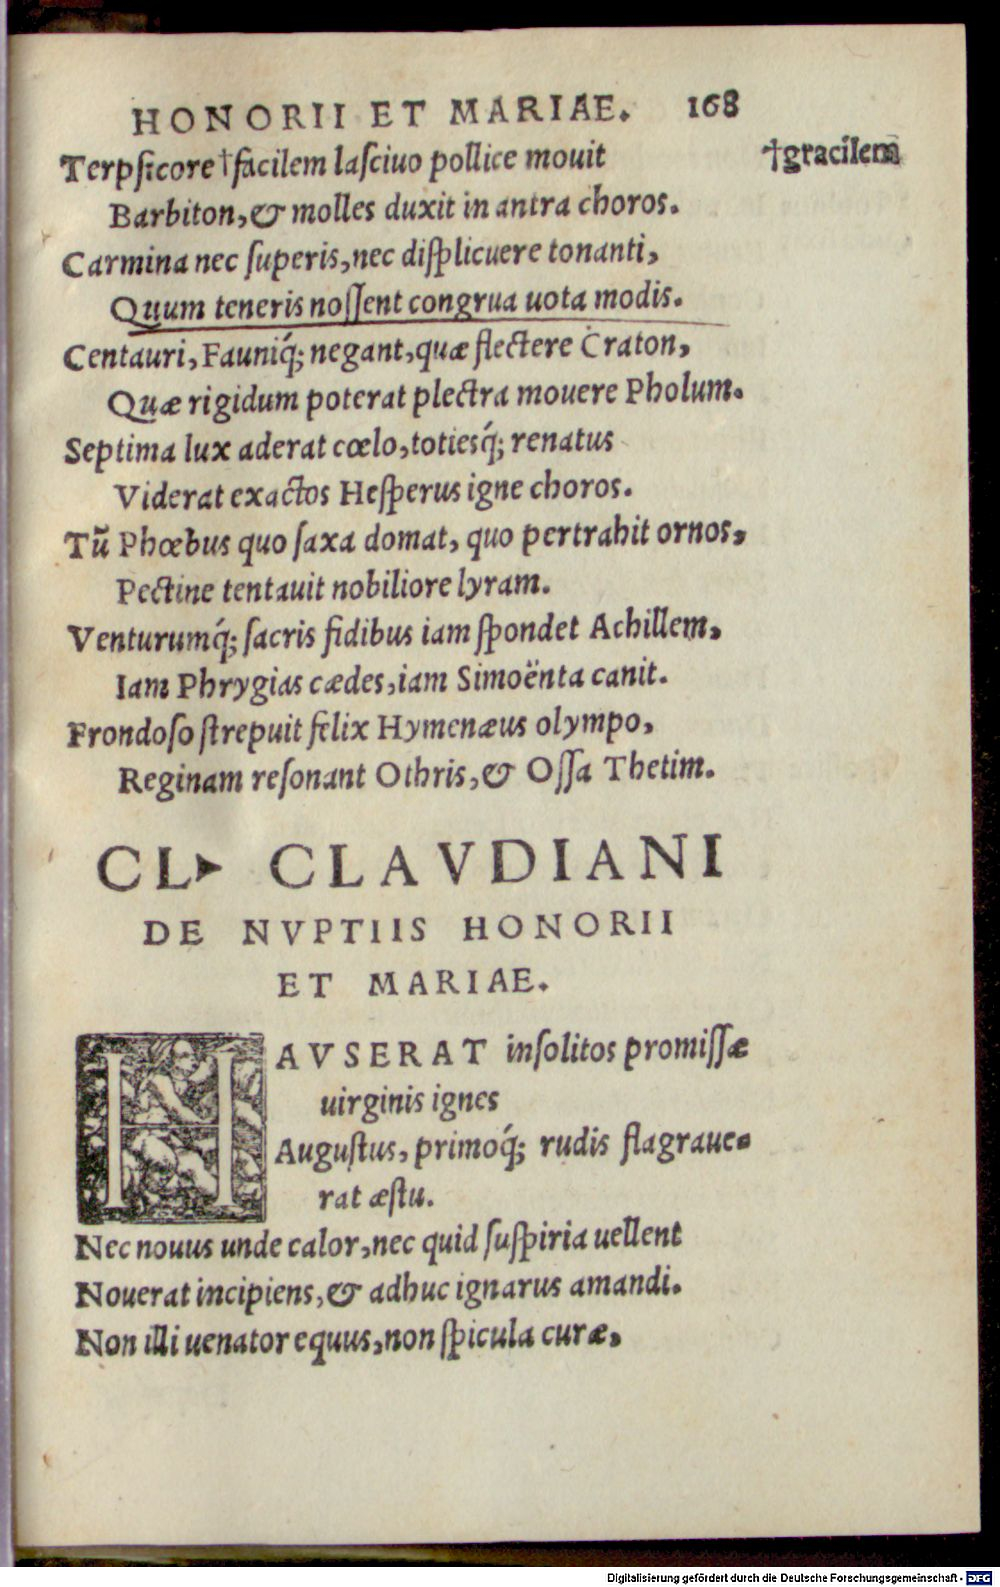 HONORII ET MARIAE. 168
Terpſicore †facilem laſciuo pollice mouit †gracilem
Barbiton, & molles duxit in antra choros.
Carmina nec ſuperis, nec diſplicuere tonanti,
Quum teneris noſſent congrua uota modis.
Centauri, Fauniq́; negant, quæ flectere Craton,
Quæ rigidum poterat plectra mouere Pholum.
Septima lux aderat cœlo, totiesq́; renatus
Viderat exactos Heſperus igne choros.
Tũ Phœbus quo ſaxa domat, quo pertrahit ornos,
Pectine tentauit nobiliore lyram.
Venturumq́; ſacris fidibus iam ſpondet Achillem,
Iam Phrygias cædes, iam Simoënta canit.
Frondoſo ſtrepuit felix Hymenæus olympo,
Reginam reſonant Othris, & Oſſa Thetim.
CL. CLAVDIANI
DE NVPTIIS HONORII
ET MARIAE.
HAVSERAT inſolitos promiſſæ
uirginis ignes
Auguſtus, primoq́; rudis flagraue-
rat æſtu.
Nec nouus unde calor, nec quid ſuſpiria uellent
Nouerat incipiens, & adhuc ignarus amandi.
Non illi uenator equus, non ſpicula curæ,
Digitalisierung gefördert durch die Deutsche Forschungsgemeinschaft - DFG